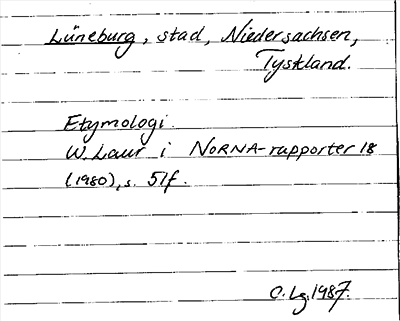 Lüneburg, stad, Niedersachsen,
Tyskland.
Etymologi.
W. Laur i NORNA-rapporter 18
(1980), s. 51f.
C. Lg. 1987.